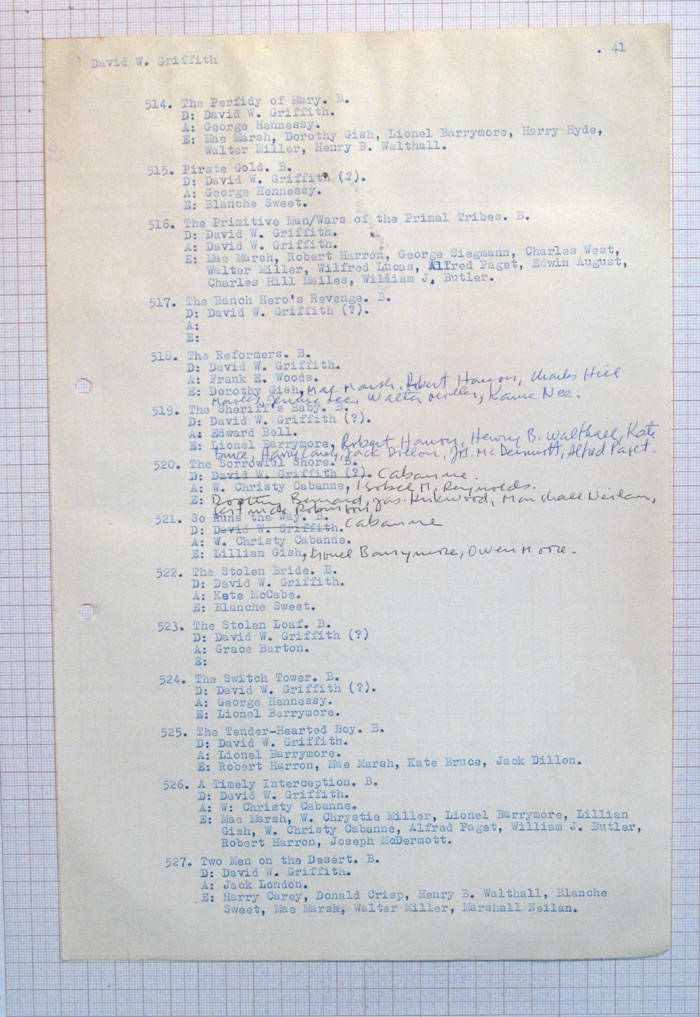 David W. Griffith
. 41
514. The Perfidy of Mary. B.
D: David W. Griffith.
A: George Hennessy.
E: Mae Marsh, Dorothy Gish, Lionel Barrymore, Harry Hyde,
Walter Miller, Henry B. Walthall.
515. Pirate Gold. B.
D: David W. Griffith (?).
A: George Hennessy.
E: Blanche Sweet.
516. The Primitive Man/Wars of the Primal Tribes. B.
D: David W. Griffith.
A: David W. Griffith.
E: Mae Marsh, Robert Harron, George Siegmann, Charles West,
Walter Miller, Wilfred Lucas, Alfred Paget, Edwin August,
Charles Hill Mailes, William J. Butler.
517. The Ranch Hero's Revenge. B.
D: David W. Griffith (?).
A:
E:
518. The Reformers. B.
D: David W. Griffith.
A: Frank E. Woods.
E: Dorothy Gish, Mae Marsh, Robert Harron, Charles Hill
Mailes, Jennie Lee, Walter Miller, Kame Nee.
519. The Sheriff's Baby. B.
D: David W. Griffith (?).
A: Edward Bell.
E: Lionel Barrymore, Robert Harron, Henry B. Walthall, Kate
Bruce, Harry Carey, Jack Dillon, Jos. McDermott, Alfred Paget.
520. The Sorrowful Shore. B.
D: David W. Griffith (?). Cabanne.
A: W. Christy Cabanne, Isobel M. Reynolds.
E: Dorothy Bernard, Jas. Kirkwood, Marshall Neilan,
Gertrude Robinson
521. So Runs the Way. B.
D: David W. Griffith. Cabanne
A: W. Christy Cabanne.
E: Lillian Gish, Lionel Barrymore, Owen Moore.
522. The Stolen Bride. B.
D: David W. Griffith.
A: Kete McCabe.
E: Blanche Sweet.
523. The Stolen Loaf. B.
D: David W. Griffith (?)
A: Grace Barton.
E:
524. The Switch Tower. B.
D: David W. Griffith (?).
A: George Hennessy.
E: Lionel Barrymore.
525. The Tender-Hearted Boy. B.
D: David W. Griffith.
A: Lionel Barrymore.
E: Robert Harron, Mae Marsh, Kate Bruce, Jack Dillon.
526. A Timely Interception. B.
D: David W. Griffith.
A: W: Christy Cabanne.
E: Mae Marsh, W. Chrystie Miller, Lionel Barrymore, Lillian
Gish, W. Christy Cabanne, Alfred Paget, William J. Butler,
Robert Harron, Joseph McDermott.
527. Two Men on the Desert. B.
D: David W. Griffith.
A: Jack London.
E: Harry Carey, Donald Crisp, Henry B. Walthall, Blanche
Sweet, Mae Marsh, Walter Miller, Marshall Neilan.